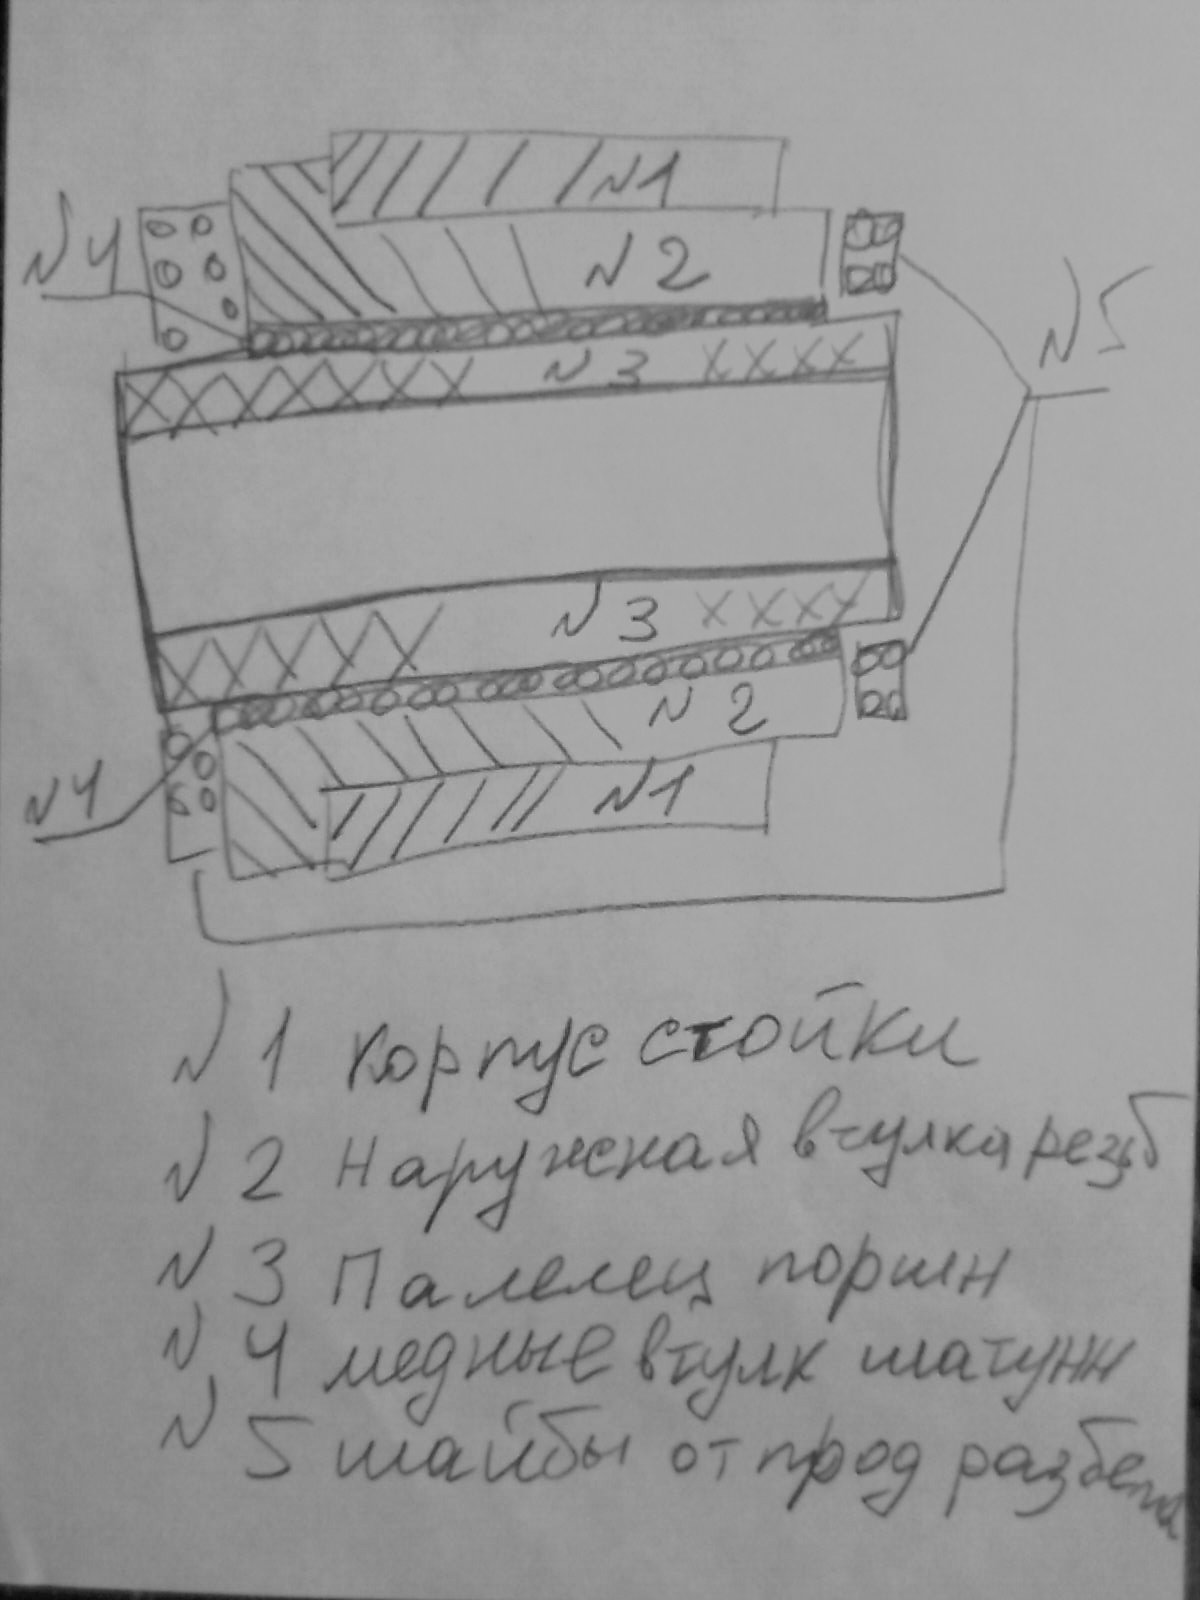 N1
N4
N2
N5
N3
N3
N2
N4
N1
N 1 Корпус стойки
N 2 Наружная втулка резьб
N 3 Палелец поршн
N 4 медные втулк шатунн
N 5 шайбы от прод разбега